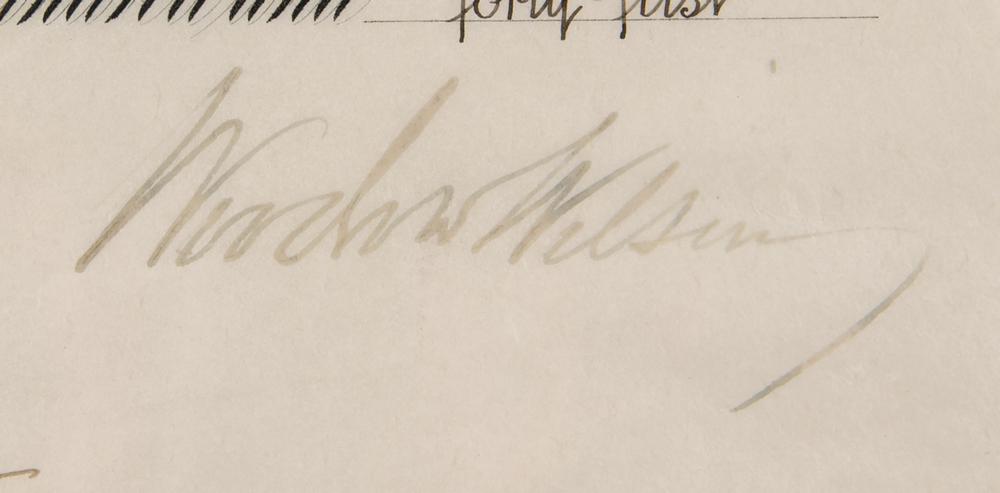 forty-first
Woodrow Wilson